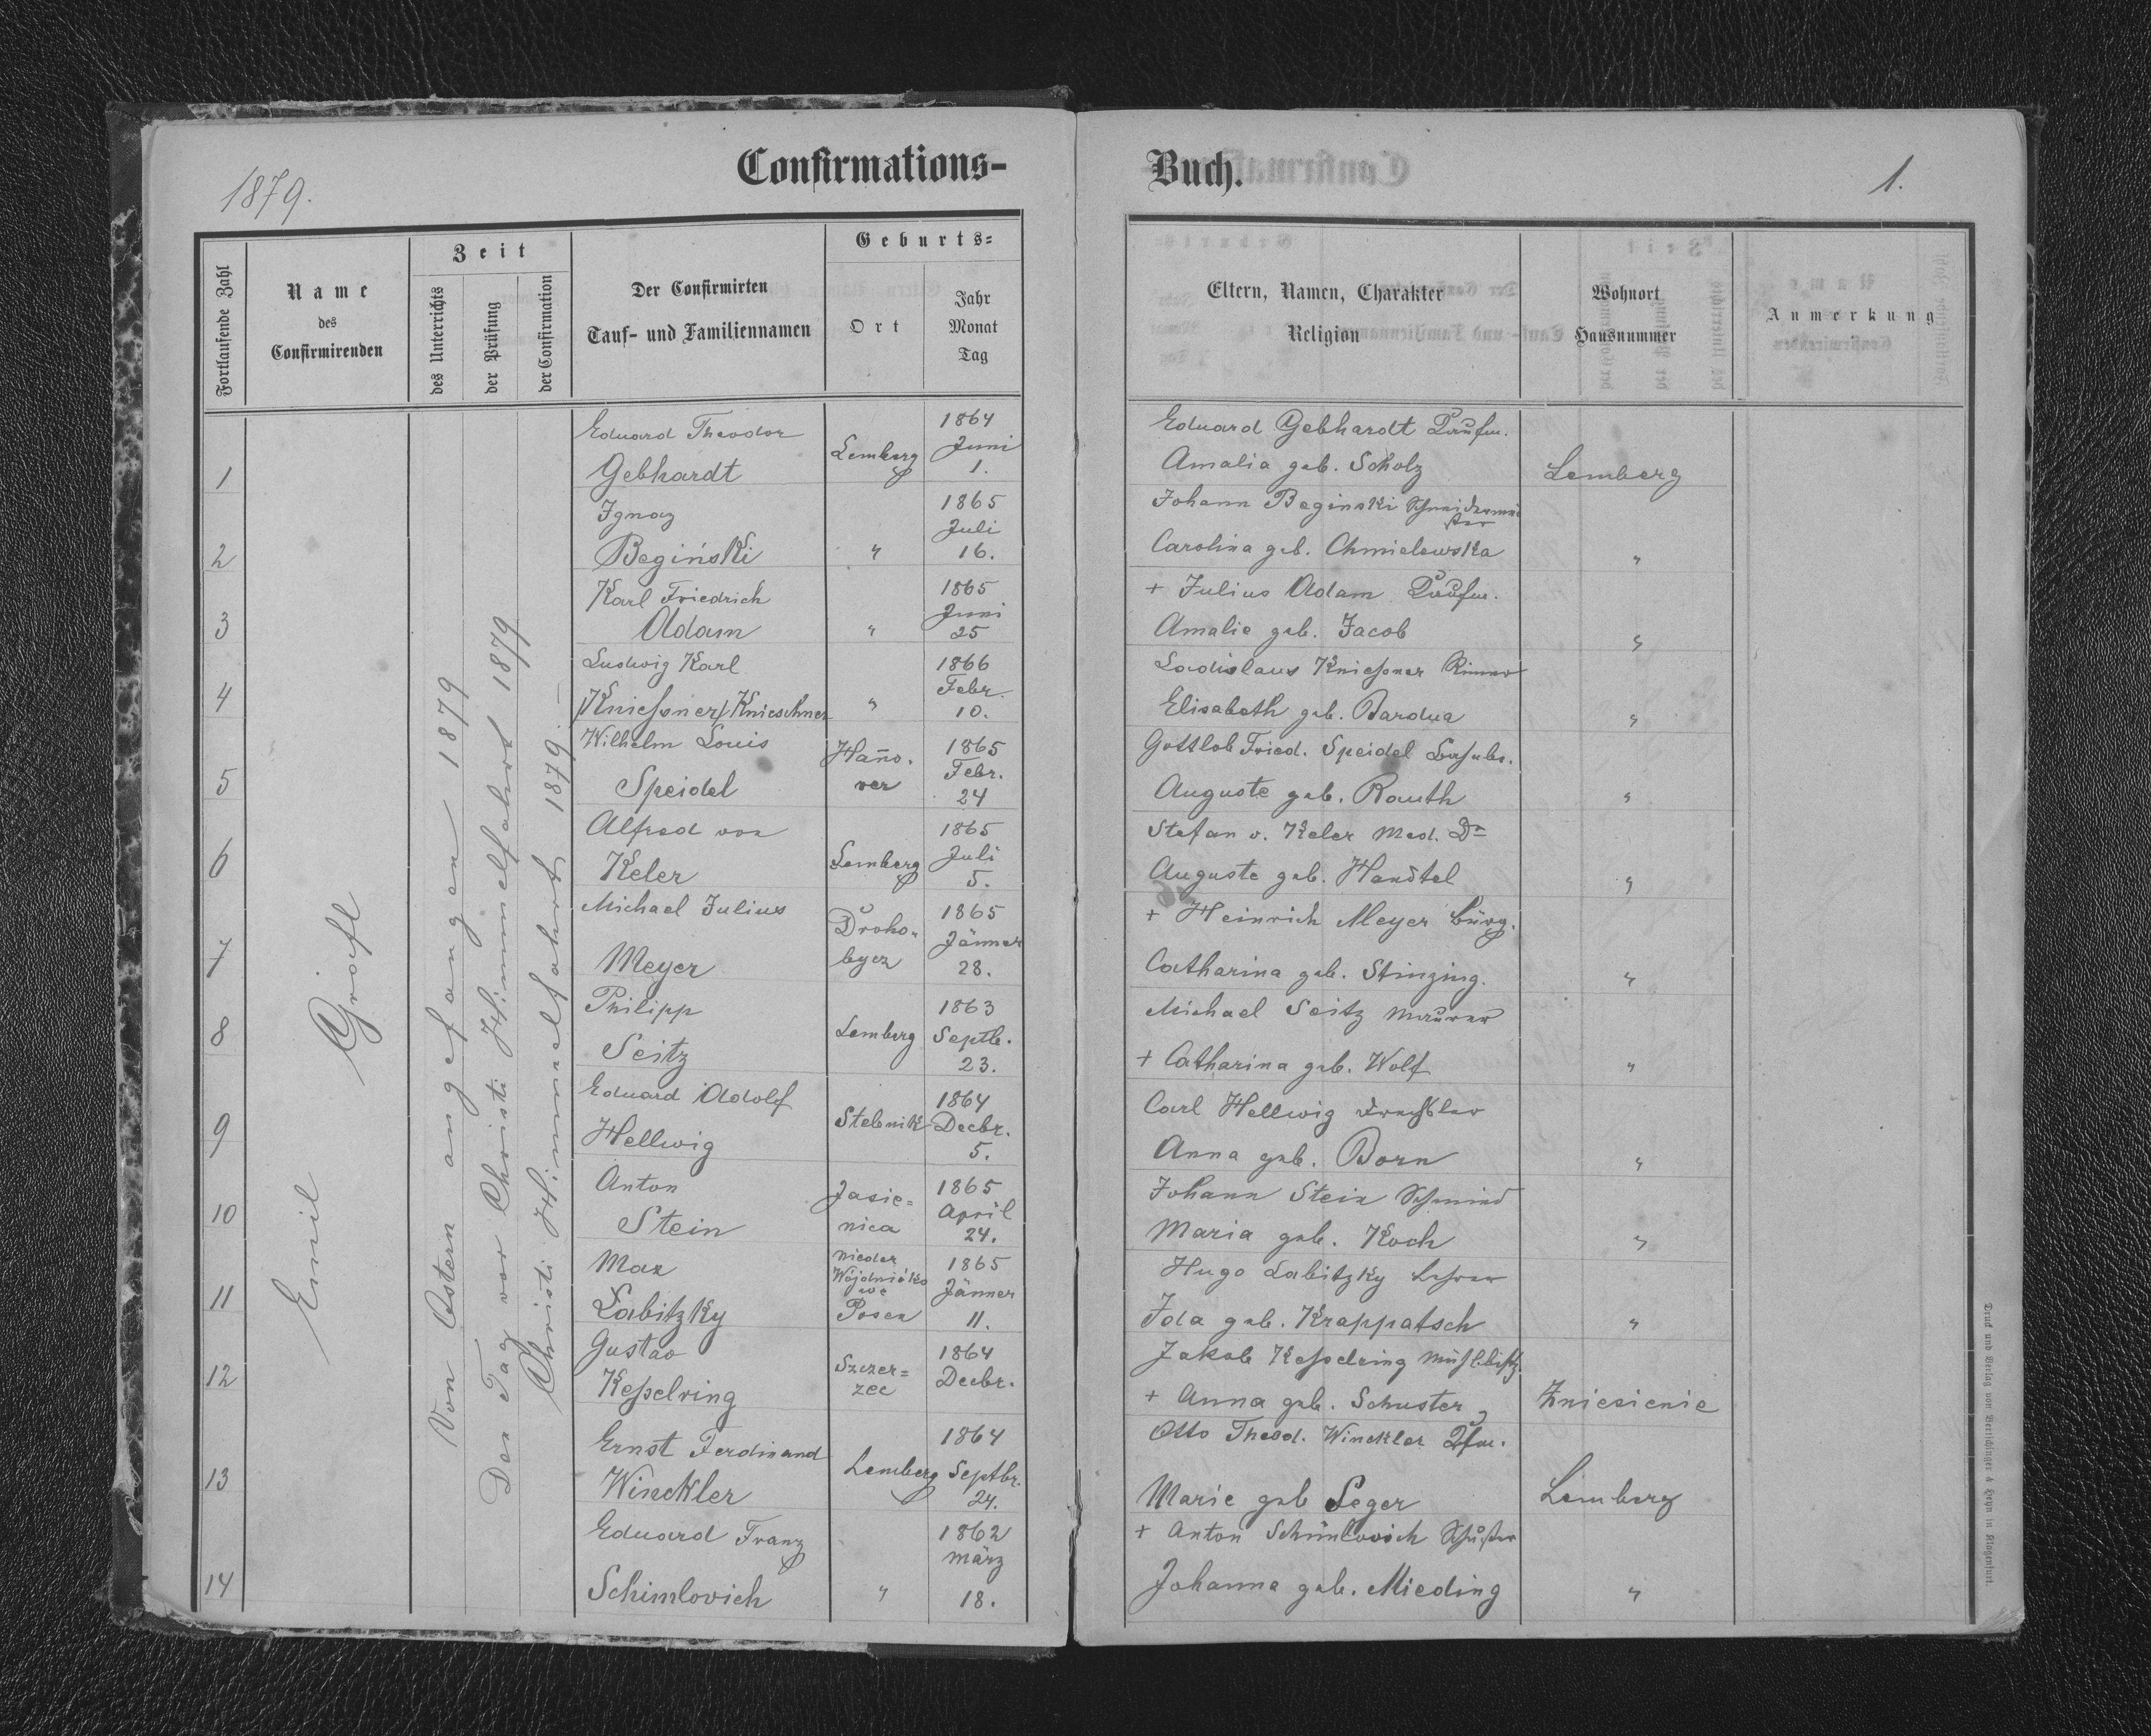 1879.
Confirmations-
Fortlaufende Zahl
Name
des
Confirmirenden
Zeit
des Unterrichts
der Prüfung
der Confirmation
Der Confirmirten
Tauf- und Familiennamen
Geburts=
Ort
Jahr
Monat
Tag
Emil Gröfl
Von Ostern angefangen 1879
Der Tag vor Christi Himmelfahrt 1879
Christi Himmelfahrt 1879. —
1
Eduard Theodor
Gebhardt
Lemberg
1864
Juni
1.
2
Ignaz
Begiński
"
1865
Juli
16.
3
Karl Friedrich
Adam
"
1865
Juni
25
4
Ludwig Karl
/Knießner/ Knieschner
"
1866
Febr.
10.
5
Wilhelm Louis
Speidel
Hano.
ver
1865
Febr.
24
6
Alfred von
Keler
Lemberg
1865
Juli
5.
7
Michael Julius
Meyer
Droho-
bycz
1865
Jänner
28.
8
Philipp
Seitz
Lemberg
1863
Septb.
23.
9
Eduard Adolf
Hellwig
Stebnik
1864
Decbr.
5.
10
Anton
Stein
Jasie=
nica
1865
April
24.
11
Max
Labitzky
nieder
Posen
1865
Jänner
11.
12
Gustav
Keßelring
Szczer=
zec
1864
Decbr.
13
Ernst Ferdinand
Winckler
Lemberg
1864
Septbr.
24.
14
Eduard Franz
Schimlovich
"
1862
März
18.
Buch.
1.
Eltern, Namen, Charakter
Religion
Wohnort
Hausnummer
Anmerkung
Eduard Gebhardt Kaufm.
Amalia geb. Scholz
Lemberg
Johann Beginski Schneidermei
ster
Carolina geb. Chmielewska
"
+ Julius Adam Kaufm.
Amalie geb. Jacob
"
Ladislaus Knießner Riemer
Elisabeth geb. Bardua
"
Gottlob Fried. Speidel
Auguste geb. Rauth
"
Stefan v. Keler Med. Dr
Auguste geb. Handtel
"
+ Heinrich Meyer Bürg.
Catharina geb. Stinzing.
"
Michael Seitz Maurer
+ Catharina geb. Wolf
"
Carl Hellwig Drechsler
Anna geb. Born
"
Johann Stein Schmied
Maria geb. Koch
"
Hugo Labitzky Lehrer
Ida geb. Krappatsch
"
Jakob Keßelring
+ Anna geb. Schuster
Zniesienie
Otto Theod. Winckler Kfm.
Marie geb Seger
Lemberg
+ Anton Schimlovich Schuster
Johanna geb. Mieding
"
Druck und Verlag von Bertschinger & Heyn in Klagenfurt.